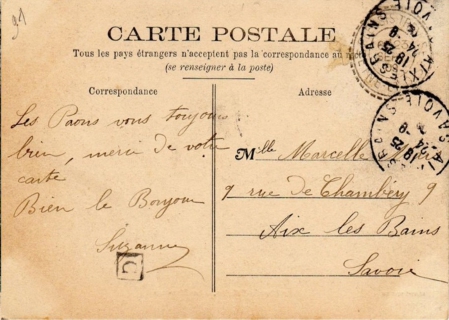 91
CARTE POSTALE
Tous les pays étrangers n'acceptent pas la correspondance au
(se renseigner à la poste)
Correspondance
Adresse
Les Paons vous toujours
bien, merci de votre
carte
Bien le Bonjour
Suzanne
C
Mlle Marcelle
9 rue de Chambéry 9
Aix les Bains
Savoie
AIX LES BAINS
SAVOIE
18 25
24
8
AIX LES BAINS
SAVOIE
18 25
24
8